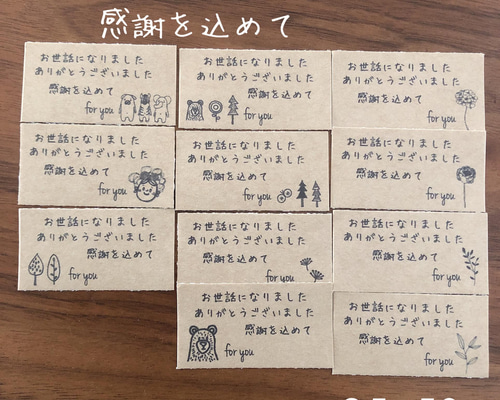 感謝を込めて
お世話になりました
ありがとうございました
感謝を込めて
for you
お世話になりました
ありがとうございました
感謝を込めて
for you
お世話になりました
ありがとうございました
感謝を込めて
for you
お世話になりました
ありがとうございました
感謝を込めて
for you
お世話になりました
ありがとうございました
感謝を込めて
for you
お世話になりました
ありがとうございました
感謝を込めて
for you
お世話になりました
ありがとうございました
感謝を込めて
for you
お世話になりました
ありがとうございました
感謝を込めて
for you
お世話になりました
ありがとうございました
感謝を込めて
for you
お世話になりました
ありがとうございました
感謝を込めて
for you
お世話になりました
ありがとうございました
感謝を込めて
for you